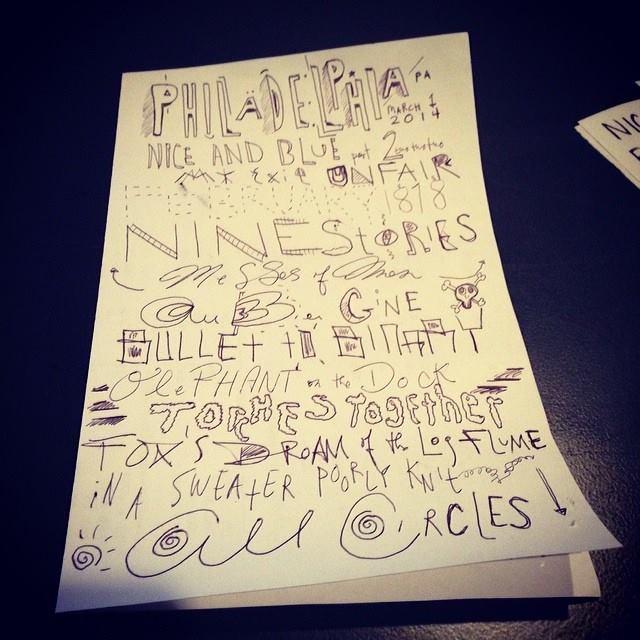 PHILADELPHIA PA
MARCH 1
2014
NICE AND BLUE part 2
MY Exit UNFAIR
FEBRUARY 1818
NINE StoRIES
Messes of Men
Au Ber GiNE
BULLET to BINARY
O'lePHANT on the DocK
TORHES TogetHer
FOX'S DROAM of the Log FLUME
iN A SWEATER POORLY KNit
All CiRCLES
NIC